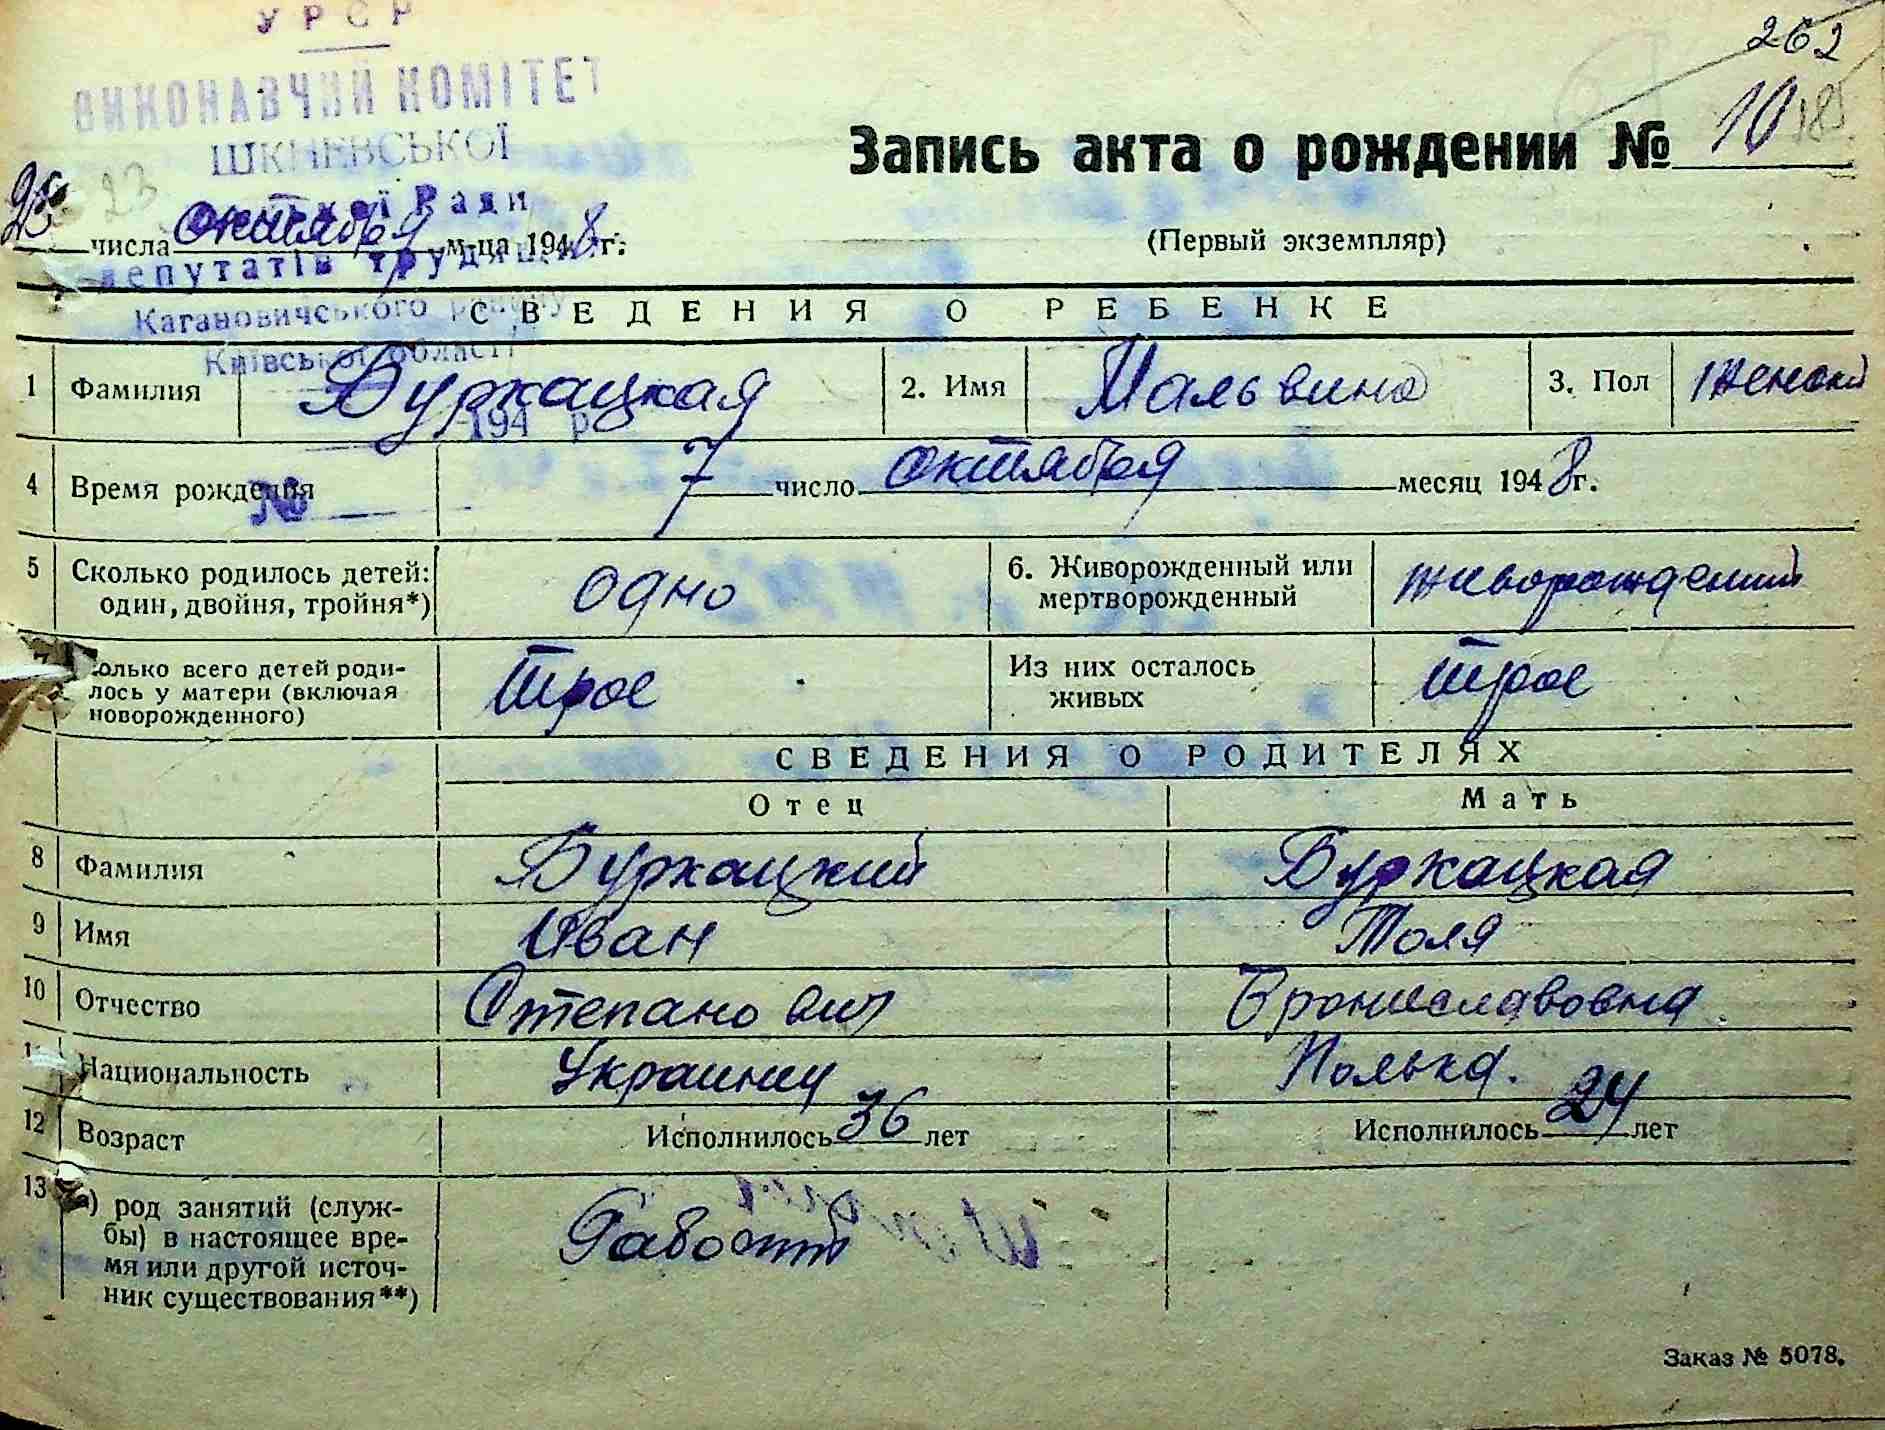 УРСР
262
ВИКОНАВЧИЙ КОМІТЕТ
ШКНЕВСЬКОЇ
Запись акта о рождении № 10 185
23
Ради
числа октября м-ца 1948 г.
(Первый экземпляр)
депутатів трудящих
СВЕДЕНИЯ О РЕБЕНКЕ
Кагановичського району
Київської області
1 Фамилия Буркацкая 2. Имя Мальвина 3. Пол женский
194 р
4 Время рождения 7 число октября месяц 1948 г.
№
5 Сколько родилось детей: один, двойня, тройня*) одно 6. Живорожденный или мертворожденный живорожденний
7 колько всего детей родилось у матери (включая новорожденного) трое Из них осталось живых трое
СВЕДЕНИЯ О РОДИТЕЛЯХ
Отец Мать
8 Фамилия Буркацкий Буркацкая
9 Имя Иван Толя
10 Отчество Степанович Брониславовна
Национальность Украинец Полька.
12 Возраст Исполнилось 36 лет Исполнилось 24 лет
13 ) род занятий (службы) в настоящее время или другой источник существования**)
Заказ № 5078.